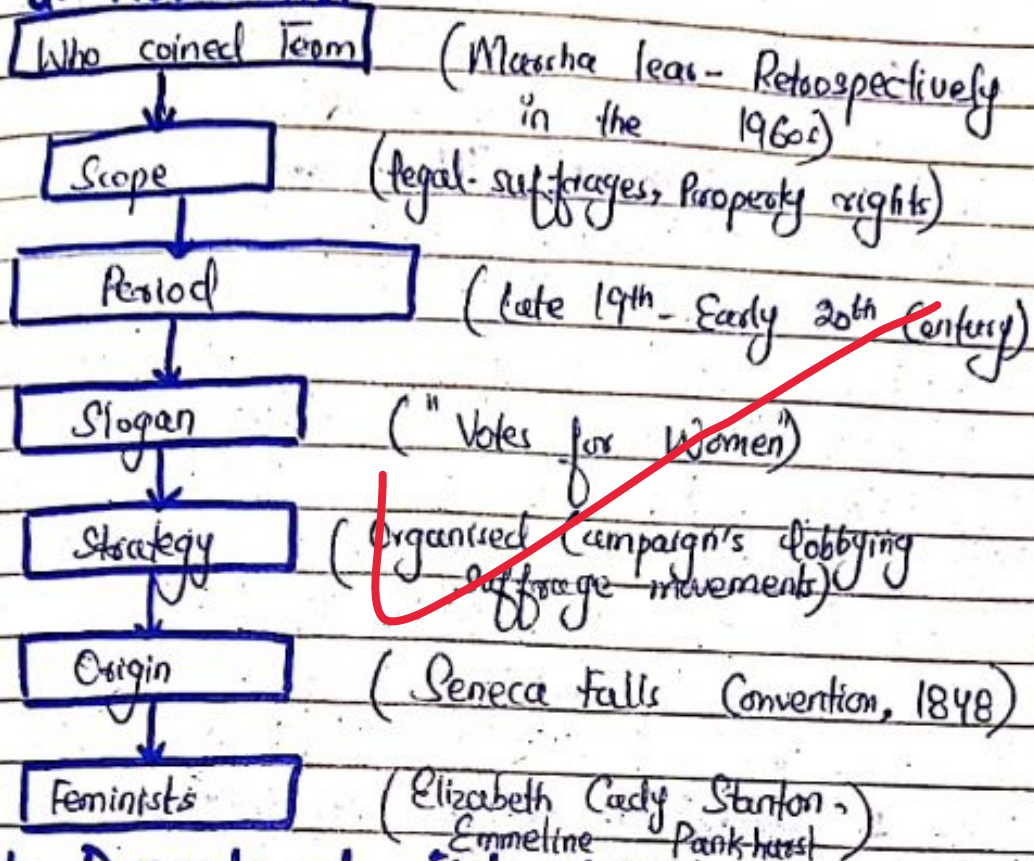 Who coined Term (Marcha lear - Retrospectively
in the 1960s)
Scope (legal - suffrages, Property rights)
Period (late 19th - Early 20th Century)
Slogan ("Votes for Women")
Strategy (Organised Campaign's lobbying
suffrage movements)
Origin (Seneca Falls Convention, 1848)
Feminists (Elizabeth Cady Stanton,
Emmeline Pankhurst)